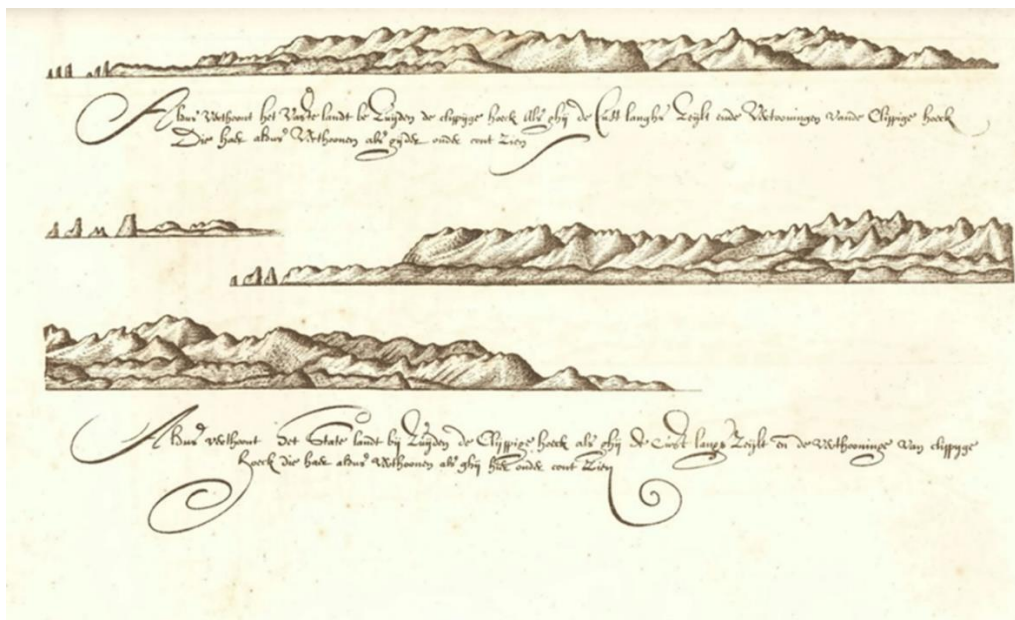 Aldus verthoont het Vaste landt be Zuijden de clippige hoeck Als ghij de Cust langhs Zeijlt ende Vertooningen Vande Clippige hoeck
Die haer aldus Verthoonen als ghij onder cont Zien
Aldus verthoont het State landt bij Zuijden de Clijppige hoeck als ghij de Cust langs Zeijlt en de Verthooninge van clippyge
Hoeck die haer aldus Verthoonen als ghij hier onder cont Zien